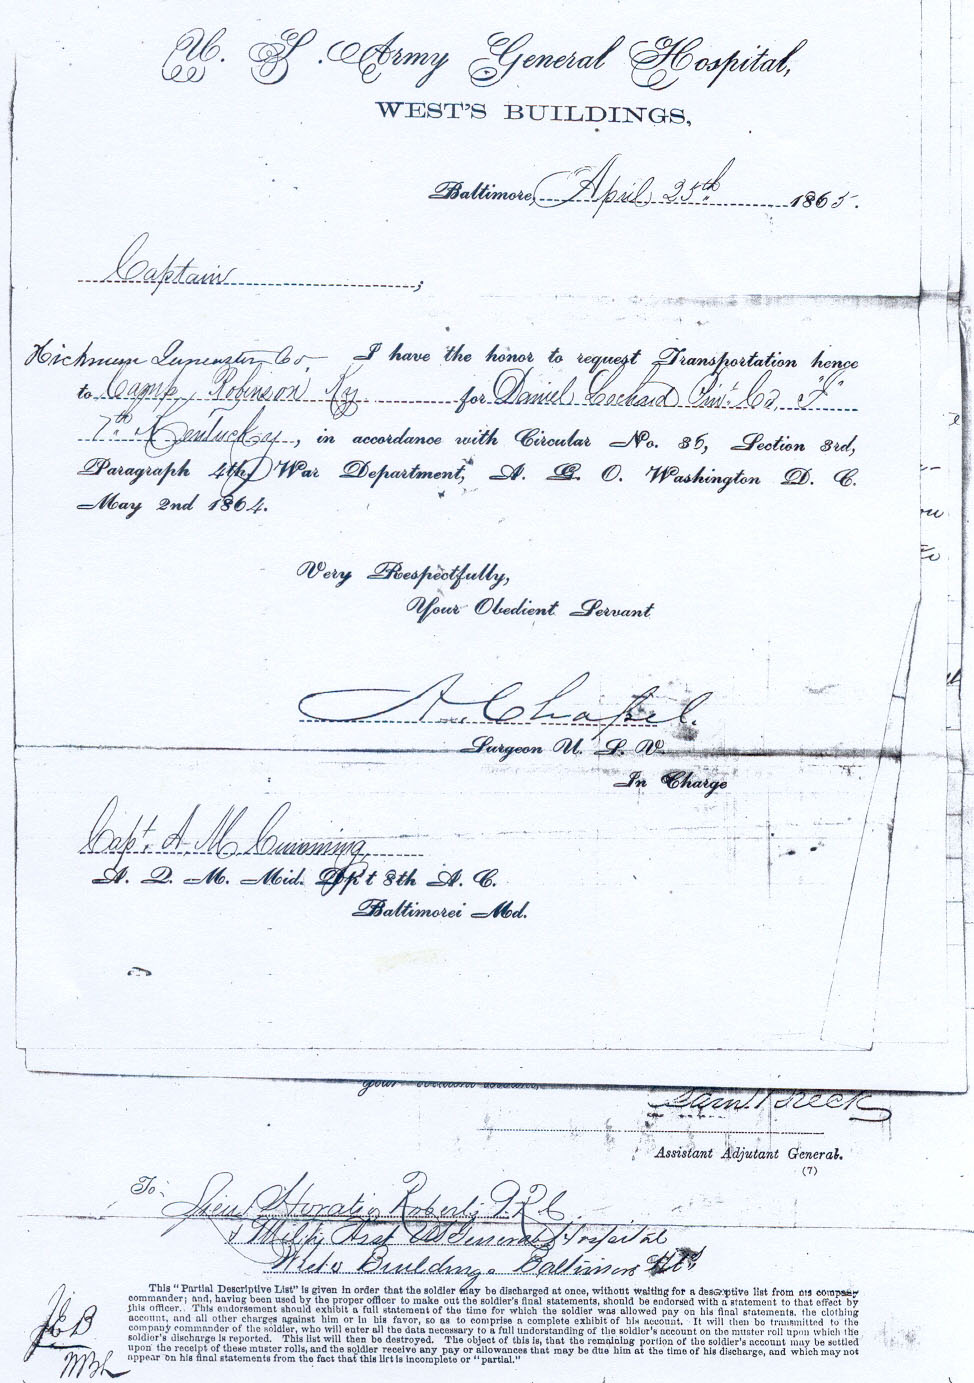 U. S. Army General Hospital,
WEST'S BUILDINGS,
Baltimore, April 25th 1865.
Captain ;
I have the honor to request Transportation hence
to Camp Robinson Ky for Daniel Lochard Co. "F"
7th Kentucky, in accordance with Circular No. 36, Section 3rd,
Paragraph 4th, War Department, A. G. O. Washington D. C.
May 2nd 1864.
Very Respectfully,
Your Obedient Servant
A. Chapel.
Surgeon U. S. V.
In Charge
Capt. A. M. Cumming
A. Q. M. Mid. Dpt 8th A. C.
Baltimorei Md.
Saml Breck
Assistant Adjutant General.
(7)
To:
Horatio Roberts
General Hospital
West's Buildings Baltimore Md
This "Partial Descriptive List" is given in order that the soldier may be discharged at once, without waiting for a descriptive list from his company
commander; and, having been used by the proper officer to make out the soldier's final statements, should be endorsed with a statement to that effect by
this officer. This endorsement should exhibit a full statement of the time for which the soldier was allowed pay on his final statements, the clothing
account, and all other charges against him or in his favor, so as to comprise a complete exhibit of his account. It will then be transmitted to the
company commander of the soldier, who will enter all the data necessary to a full understanding of the soldier's account on the muster roll upon which the
soldier's discharge is reported. This list will then be destroyed. The object of this is, that the remaining portion of the soldier's account may be settled
upon the receipt of these muster rolls, and the soldier receive any pay or allowances that may be due him at the time of his discharge, and which may not
appear on his final statements from the fact that this lirt is incomplete or "partial."